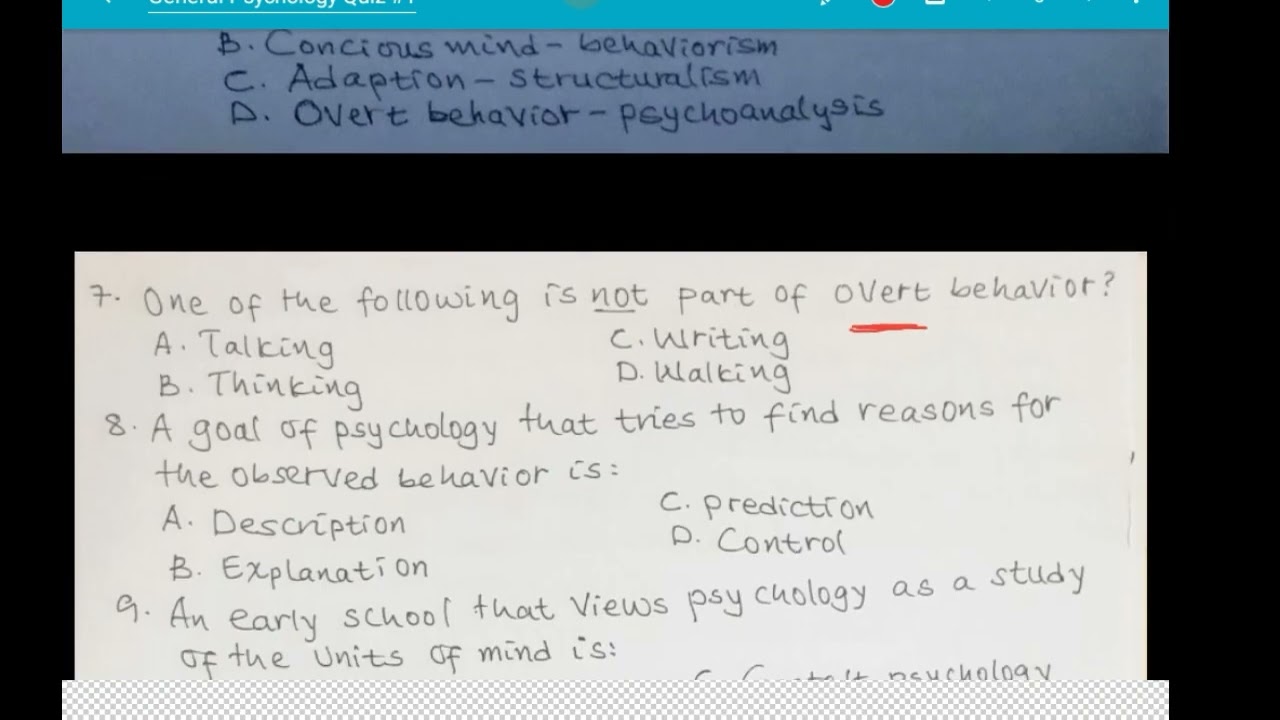 General Psychology Quiz #1
B. Concious mind - behaviorism
C. Adaption - structuralism
D. Overt behavior - psychoanalysis
7. One of the following is not part of overt behavior?
A. Talking
C. Writing
B. Thinking
D. Walking
8. A goal of psychology that tries to find reasons for
the observed behavior is:
A. Description
C. prediction
B. Explanation
D. Control
9. An early school that views psychology as a study
of the units of mind is:
psychology